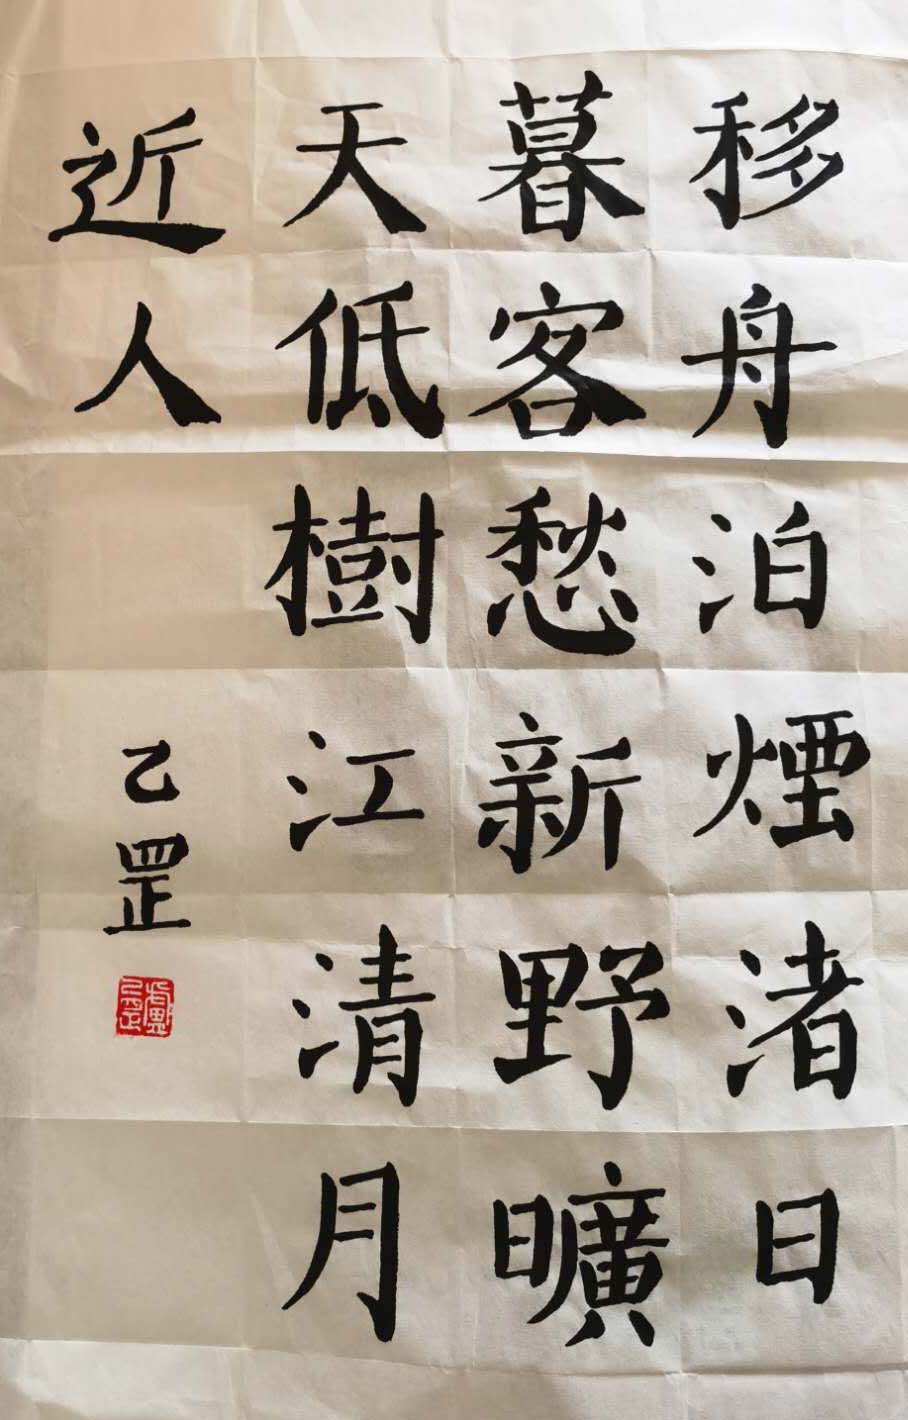 移舟泊煙渚日
暮客愁新野曠
天低樹江清月
近人
乙罡